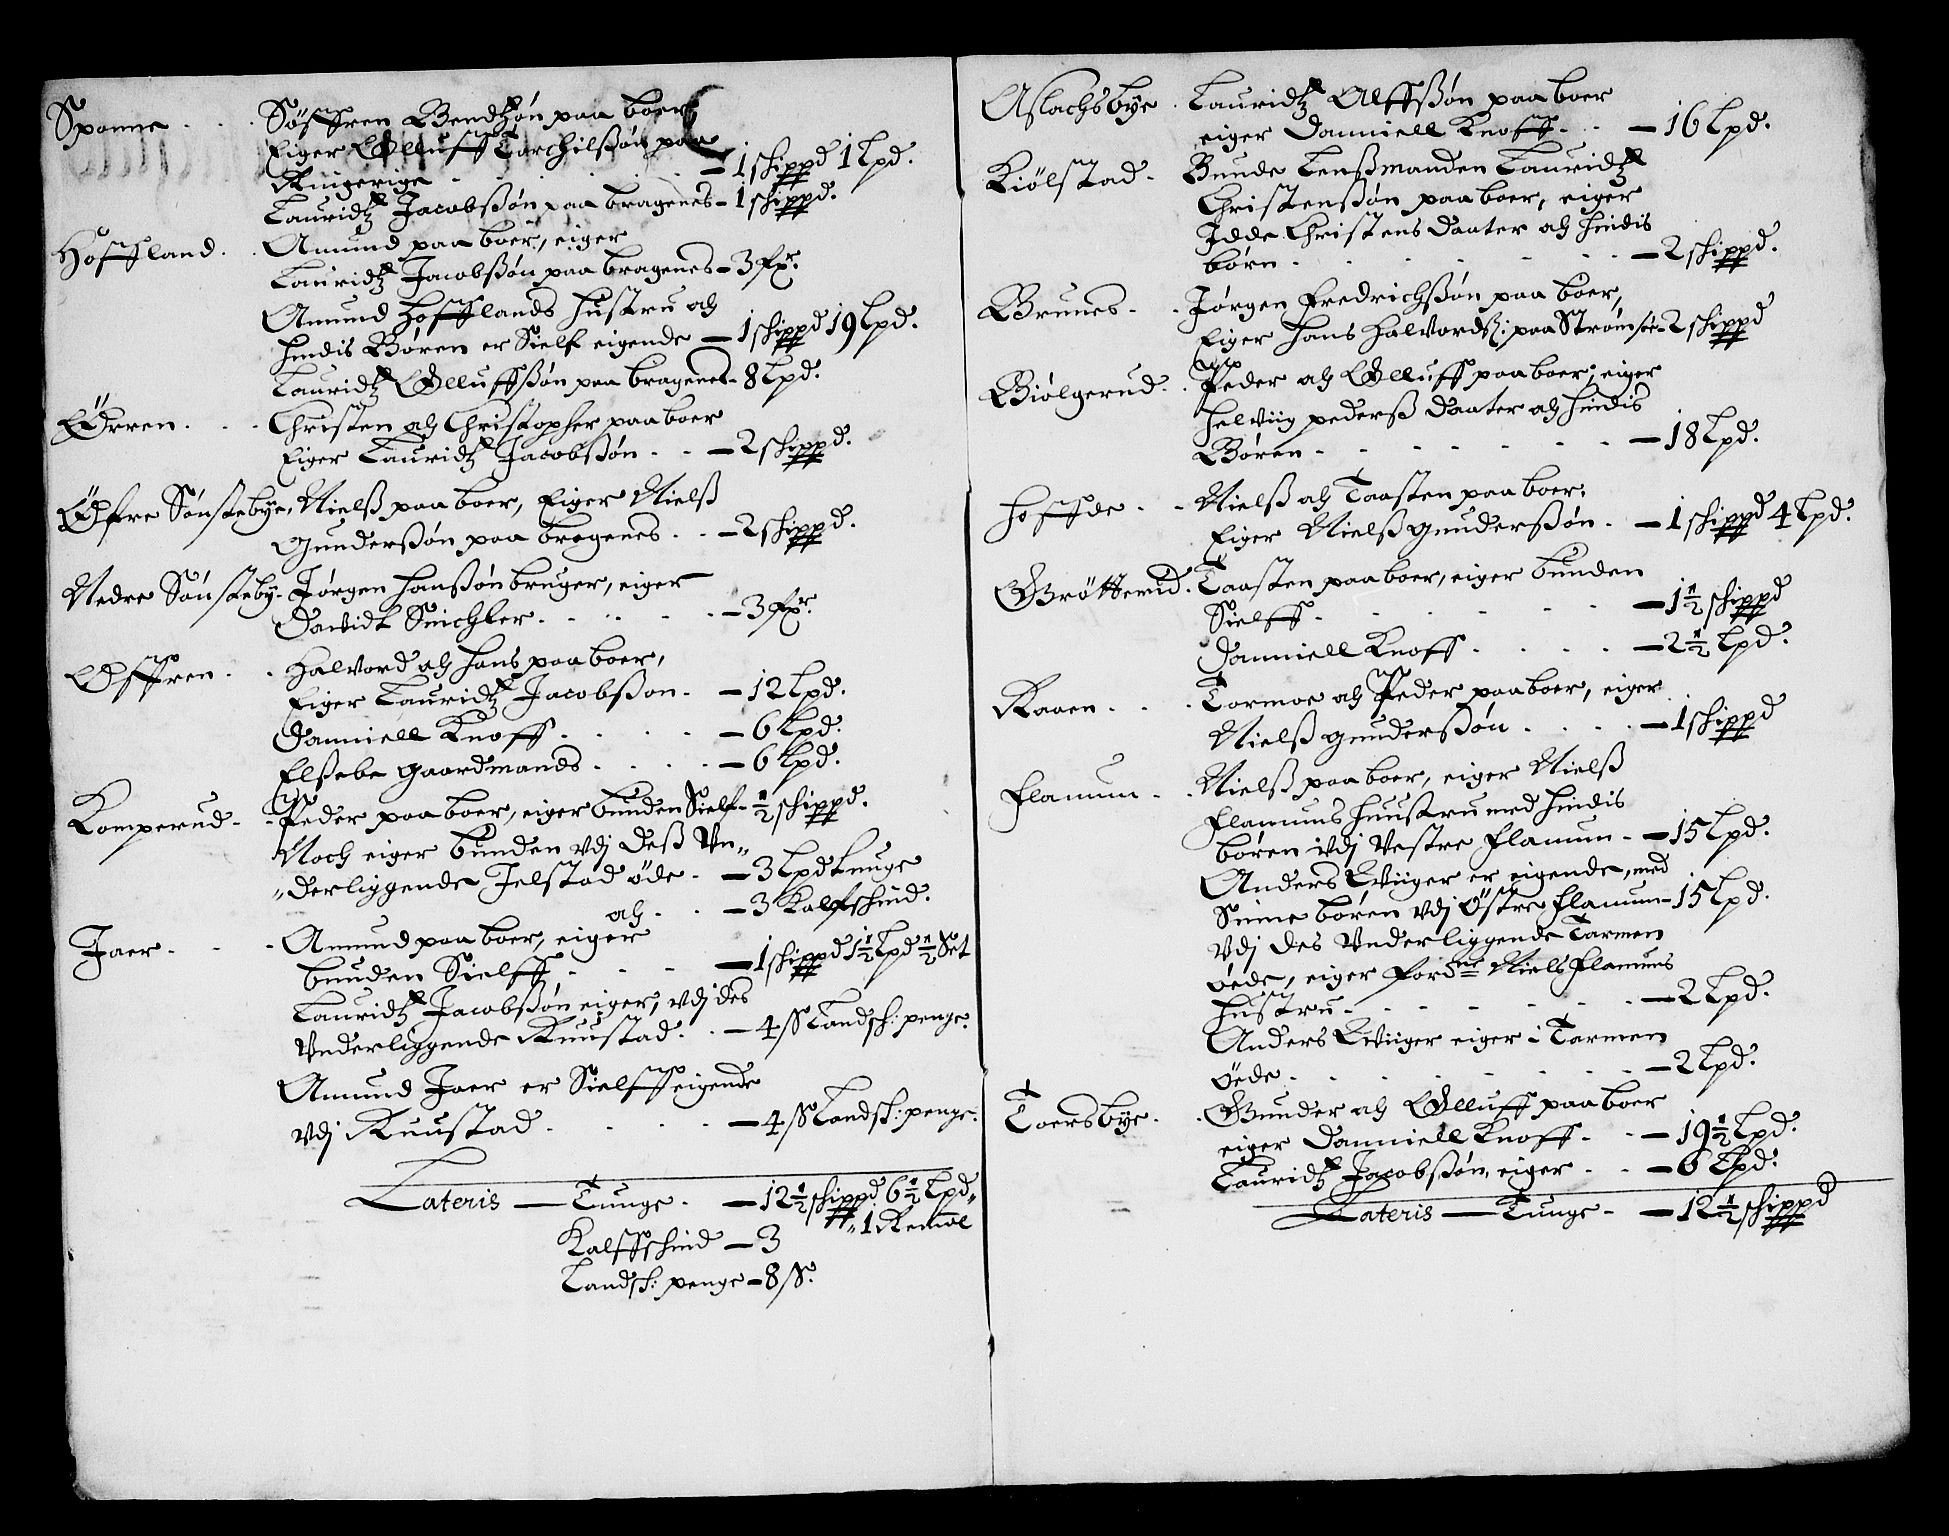 Sponne . . . Søffren Bendtzøn paa boer
Eiger Olluff Torchilßøn paa
Ringerige . . . . . . — 1 schippd 1 Lpd.
Lauridtz Jacobßøn paa bragenes – 1 schippd.
Hoffland . . Amund paa boer, eiger
Lauridtz Jacobßøn paa bragenes – 3 fxr.
Amund Hofflands hustru och
hindis Børen er Sielf eigende — 1 schippd 19 Lpd.
Lauridtz Olluffßøn paa bragenes – 8 Lpd.
Ørren . . . Christen och Christopher paa boer
Eiger Lauridtz Jacobßøn . . — 2 schippd.
Øfre Sønstebye, Nielß paa boer, Eiger Nielß
Gunderßøn paa bragenes . . — 2 schippd.
Nedre Sønsteby – Jørgen Hanßøn bruger, eiger
Davidt Sinchler . . . . . — 3 fxr.
Offren . . Halvord och Hans paa boer,
Eiger Lauridtz Jacobßøn . — 12 Lpd.
Danniell Knoff . . . . . — 6 Lpd.
Elßebe Gaardmands . . . . — 6 Lpd.
Komperud . . Peder paa boer, eiger bunden Sielf – ½ schippd.
Noch eiger bunden vdj deß Vn„
„derliggende Jelstad øde . — 3 Lpd tunge
och . . — 3 Kalfschind.
Jaer . . . . Amund paa boer, eiger
bunden Sielff . . . . — 1 schippd 1½ Lpd ½ Set
Lauridtz Jacobßøn eiger, vdj des
Vnderliggende Knustad . . — 4 ß Landsch: penge.
Amund Jaer er Sielff eigende
vdj Knustad . . . . . — 4 ß Landsch: penge.
Lateris — Tunge . — 12½ schippd 6½ Lpd„
„1 Remoel
Kalffschind — 3
Landsch: penge – 8 ß.
Aslachsbye . Lauridtz Olffßøn paa boer
eiger Danniell Knoff . . — 16 Lpd.
Kiølstad . Bunde Lenßmanden Lauridtz
Christenßøn paa boer, eiger
Idde Christens Daater och hindis
børn . . . . . . . — 2 schippd.
Brunes . . Jørgen Fredrichßøn paa boer,
Eiger Hans Halvordß: paa Strømsøe – 2 schippd
Biølgerud . . Peder och Olluff paa boer, eiger
Helvig Pederß Daater och hindis
Børen . . . . . . . — 18 Lpd.
Hoffde . . . Nielß och Taasten paa boer,
Eiger Nielß Gunderßøn . — 1 schippd 4 Lpd.
Grøtterud . Taasten paa boer, eiger bunden
Sielff . . . . . . . — 1½ schippd
Danniell Knoff . . . . . — 2½ Lpd.
Raaen . . . . Tormoe och Peder paa boer, eiger
Nielß Gunderßøn . . . . — 1 schippd
Flamum . . Nielß paa boer, eiger Nielß
Flamums huustru med hindis
børen i vdj Vestre Flamum . — 15 Lpd.
Anders Eviiger er eigende, med
Sinne børen vdj Østre Flamum – 15 Lpd.
Vdj des Vnderliggende Tarmen
øede, eiger Fordne Niels Flamums
hustru . . . . . . . — 2 Lpd.
Anders Eviiger eiger i Tarmen
øede . . . . . . . — 2 Lpd.
Toersbye . . Gunder och Olluff paa boer
eiger Danniell Knoff . . — 19½ Lpd.
Lauridtz Jacobßøn, eiger . . — 6 Lpd.
Lateris — Tunge . — 12½ schippd